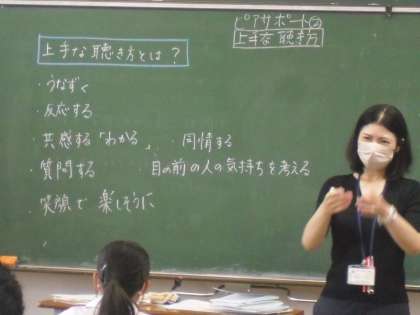 ピアサポート②
上手な聴き方
上手な聴き方とは？
・うなずく
・反応する
・共感する「わかる」 同情する
・質問する 目の前の人の気持ちを考える
・笑顔で 楽しそうに